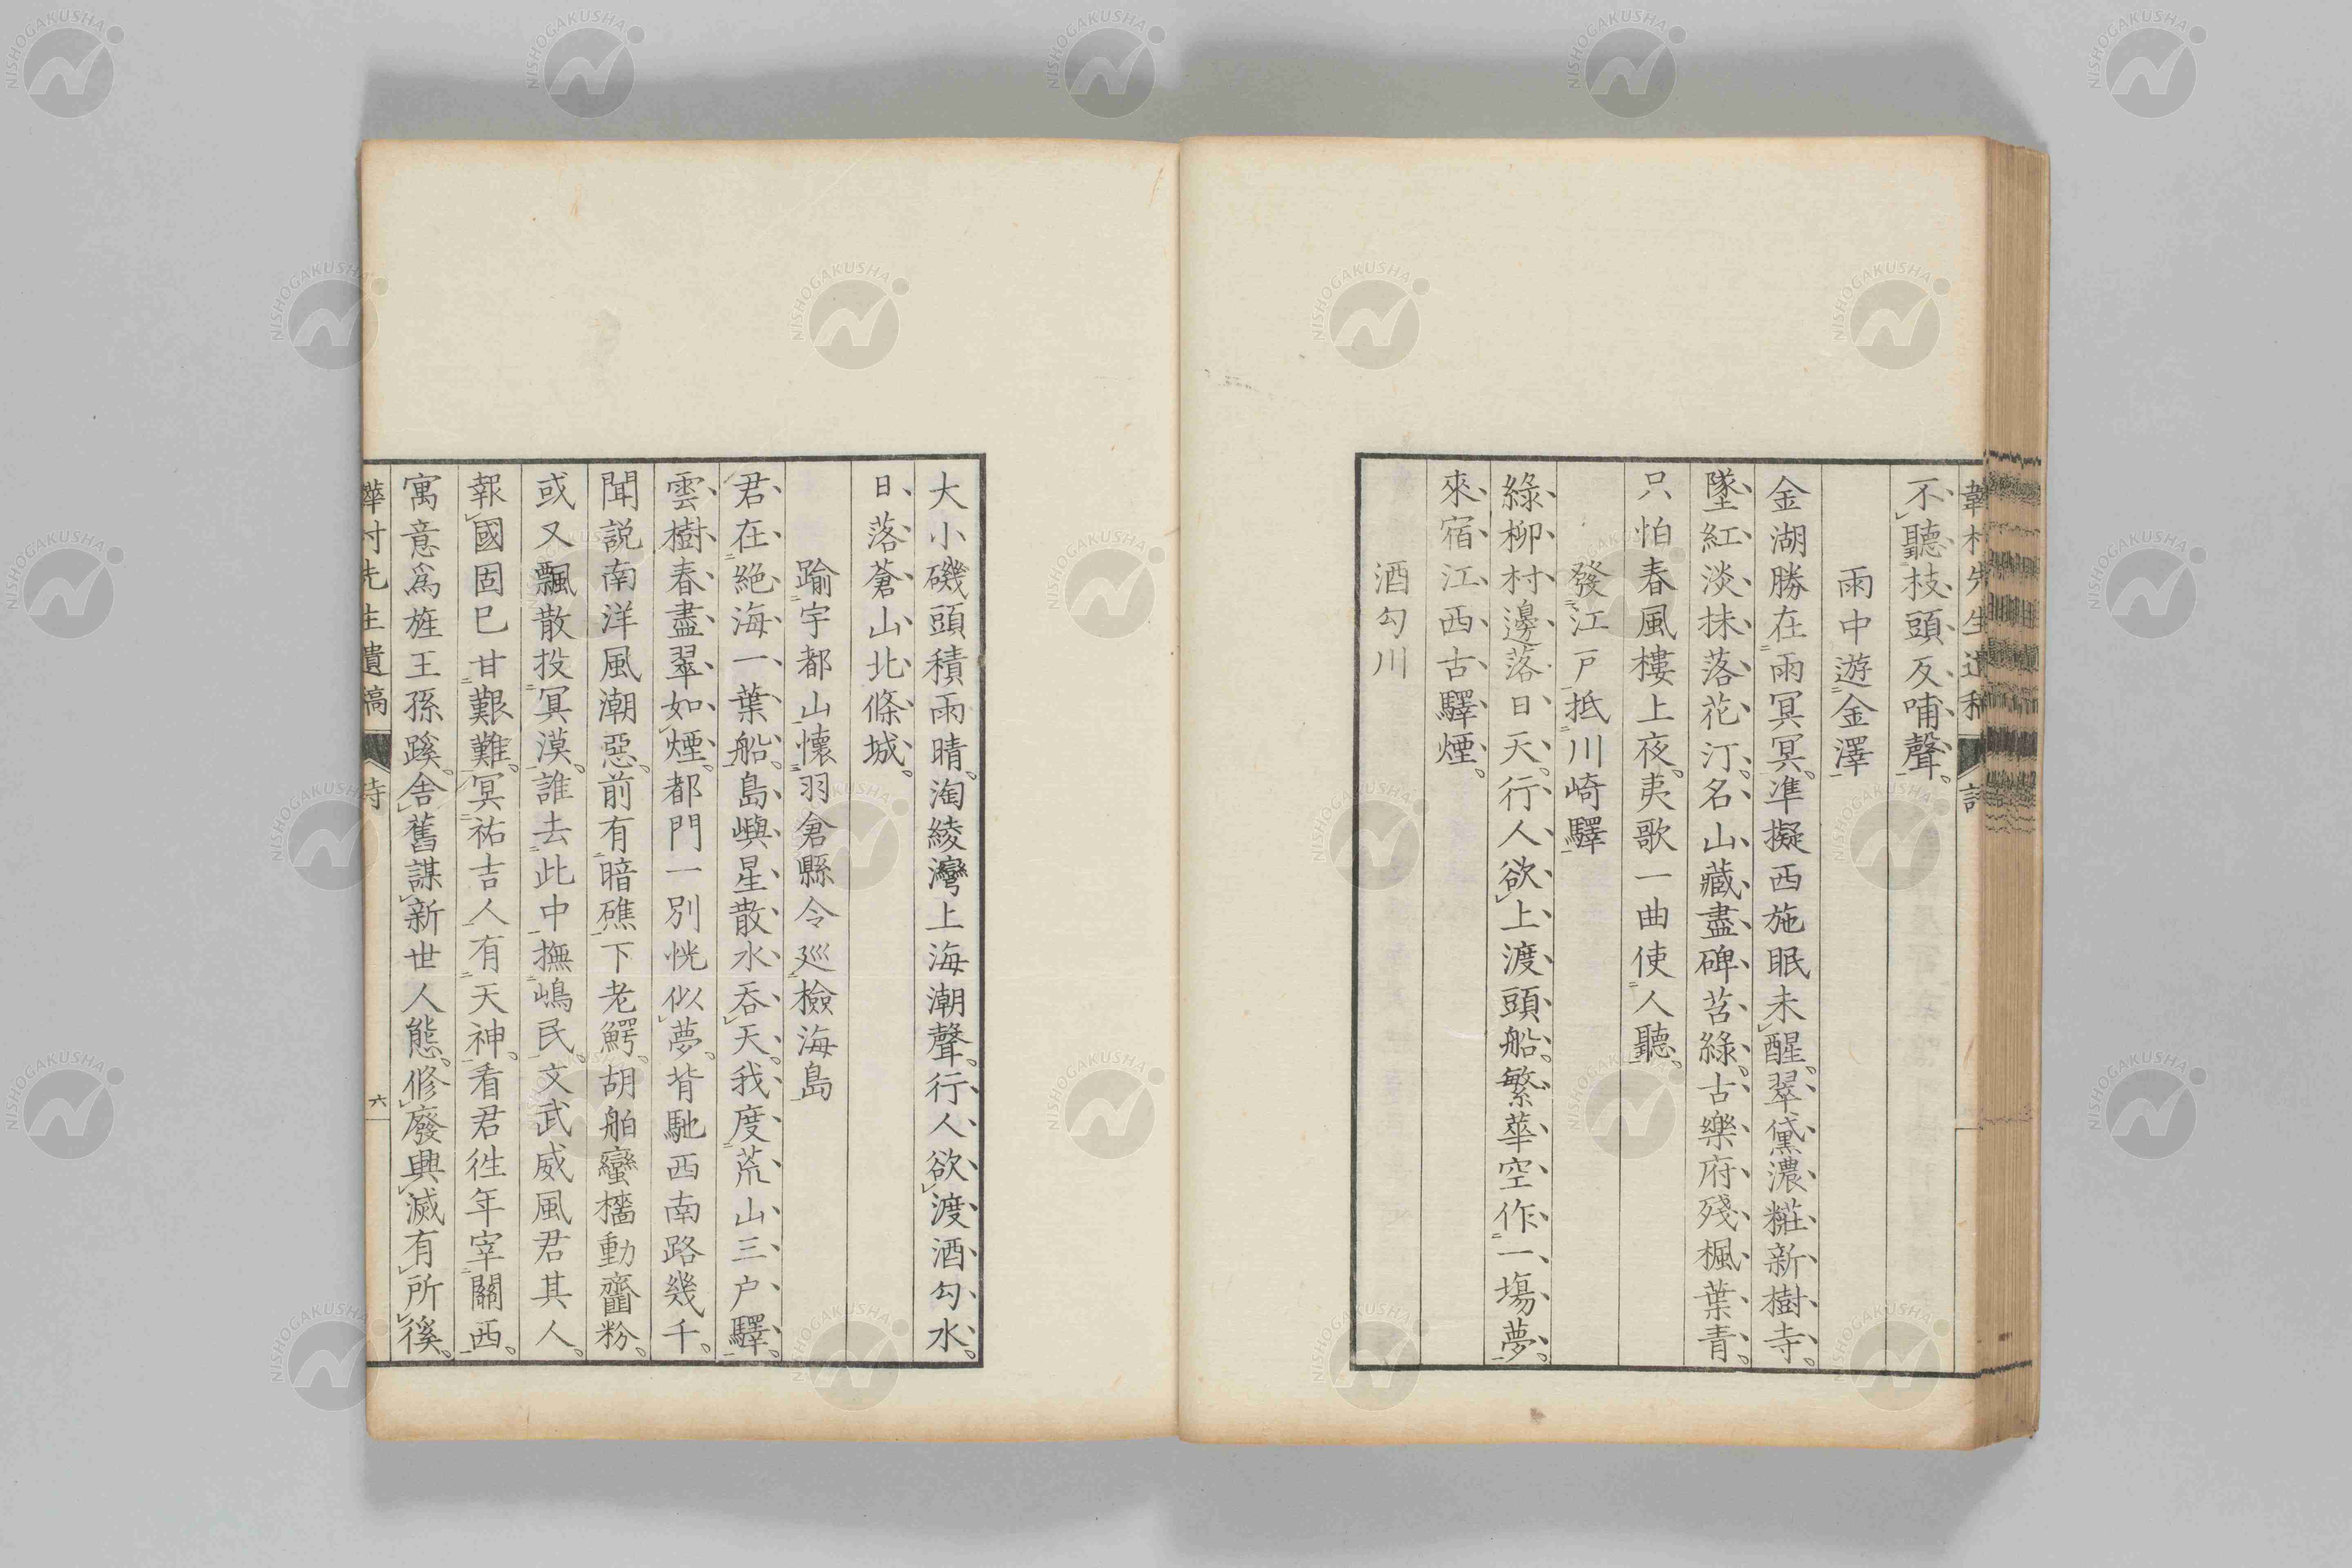 不聽枝頭反哺聲。
雨中遊金澤
金湖勝在雨冥冥。準擬西施眠未醒。翠黛濃糚新樹寺。
墜紅淡抹落花汀。名山藏盡碑苔綠。古樂府殘楓葉青。
只怕春風樓上夜。夷歌一曲使人聽。
發江戸抵川崎驛
綠柳村邊落日天。行人欲上渡頭船。繁華空作一場夢。
來宿江西古驛煙。
酒勾川
大小磯頭積雨晴。淘綾灣上海潮聲。行人欲渡酒勾水。
日落蒼山北條城。
踰宇都山懷羽倉縣令巡檢海島
君在絕海一葉船。島嶼星散水吞天。我度荒山三户驛。
雲樹春盡翠如煙。都門一別恍似夢。背馳西南路幾千。
聞説南洋風潮惡。前有暗礁下老鰐。胡舶蠻檣動齏粉。
或又飄散投冥漠。誰去此中撫嶋民。文武威風君其人。
報國固已甘艱難。冥祐吉人有天神。看君徃年宰關西。
寓意爲旌王孫蹊。舍舊謀新世人態。修廢興滅有所徯。
先生遺稿
六
NISHOGAKUSHA